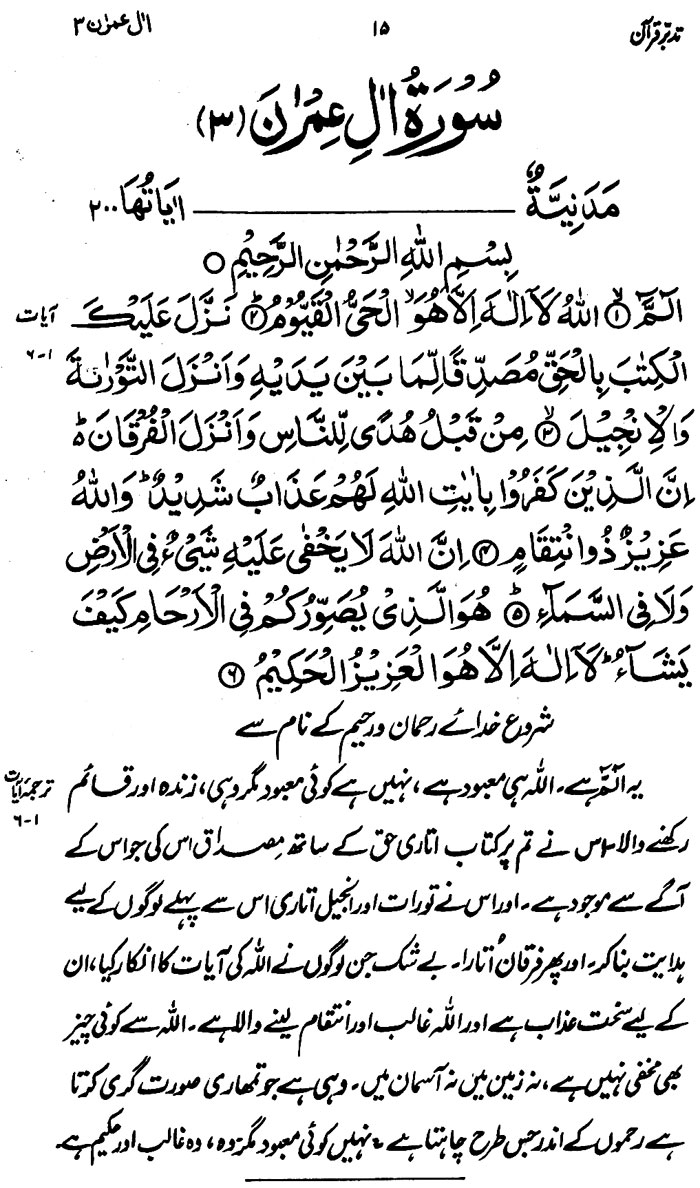 تدبر قرآن ۱۵ اٰل عمرٰن ۳
سُوْرَةُ اٰلِ عِمْرٰنَ (۳)
مَدَنِيَّةٌ اٰيَاتُهَا ۲۰۰
بِسْمِ اللّٰهِ الرَّحْمٰنِ الرَّحِيْمِ
الٓمّٓ ۙ﴿۱﴾ اللّٰهُ لَآ اِلٰهَ اِلَّا هُوَ ۙ الْحَيُّ الْقَيُّوْمُ ؕ﴿۲﴾ نَزَّلَ عَلَيْكَ
آیات
۱-۶
الْكِتٰبَ بِالْحَقِّ مُصَدِّقًا لِّمَا بَيْنَ يَدَيْهِ وَاَنْزَلَ التَّوْرٰىةَ
وَالْاِنْجِيْلَ ۙ﴿۳﴾ مِنْ قَبْلُ هُدًى لِّلنَّاسِ وَاَنْزَلَ الْفُرْقَانَ ؕ
اِنَّ الَّذِيْنَ كَفَرُوْا بِاٰيٰتِ اللّٰهِ لَهُمْ عَذَابٌ شَدِيْدٌ ؕ وَاللّٰهُ
عَزِيْزٌ ذُو انْتِقَامٍ ﴿۴﴾ اِنَّ اللّٰهَ لَا يَخْفٰى عَلَيْهِ شَيْءٌ فِي الْاَرْضِ
وَلَا فِي السَّمَآءِ ؕ﴿۵﴾ هُوَ الَّذِيْ يُصَوِّرُكُمْ فِي الْاَرْحَامِ كَيْفَ
يَشَآءُ ؕ لَآ اِلٰهَ اِلَّا هُوَ الْعَزِيْزُ الْحَكِيْمُ ﴿۶﴾
شروع خدائے رحمان ورحیم کے نام سے
یہ الٓمّٓ ہے۔ اللہ ہی معبود ہے، نہیں ہے کوئی معبود مگر وہی، زندہ اور قائم
ترجمۂ آیات
۱-۶
رکھنے والا۔ اس نے تم پر کتاب اتاری حق کے ساتھ مصداق اس کی جو اس کے
آگے سے موجود ہے۔ اور اس نے تورات اور انجیل اتاری اس سے پہلے لوگوں کے لیے
ہدایت بنا کر۔ اور پھر فرقان اُتارا۔ بے شک جن لوگوں نے اللہ کی آیات کا انکار کیا، ان
کے لیے سخت عذاب ہے اور اللہ غالب اور انتقام لینے والا ہے۔ اللہ سے کوئی چیز
بھی مخفی نہیں ہے، نہ زمین میں نہ آسمان میں۔ وہی ہے جو تمھاری صورت گری کرتا
ہے رحموں کے اندر جس طرح چاہتا ہے۔ نہیں کوئی معبود مگر وہ، وہ غالب اور حکیم ہے۔